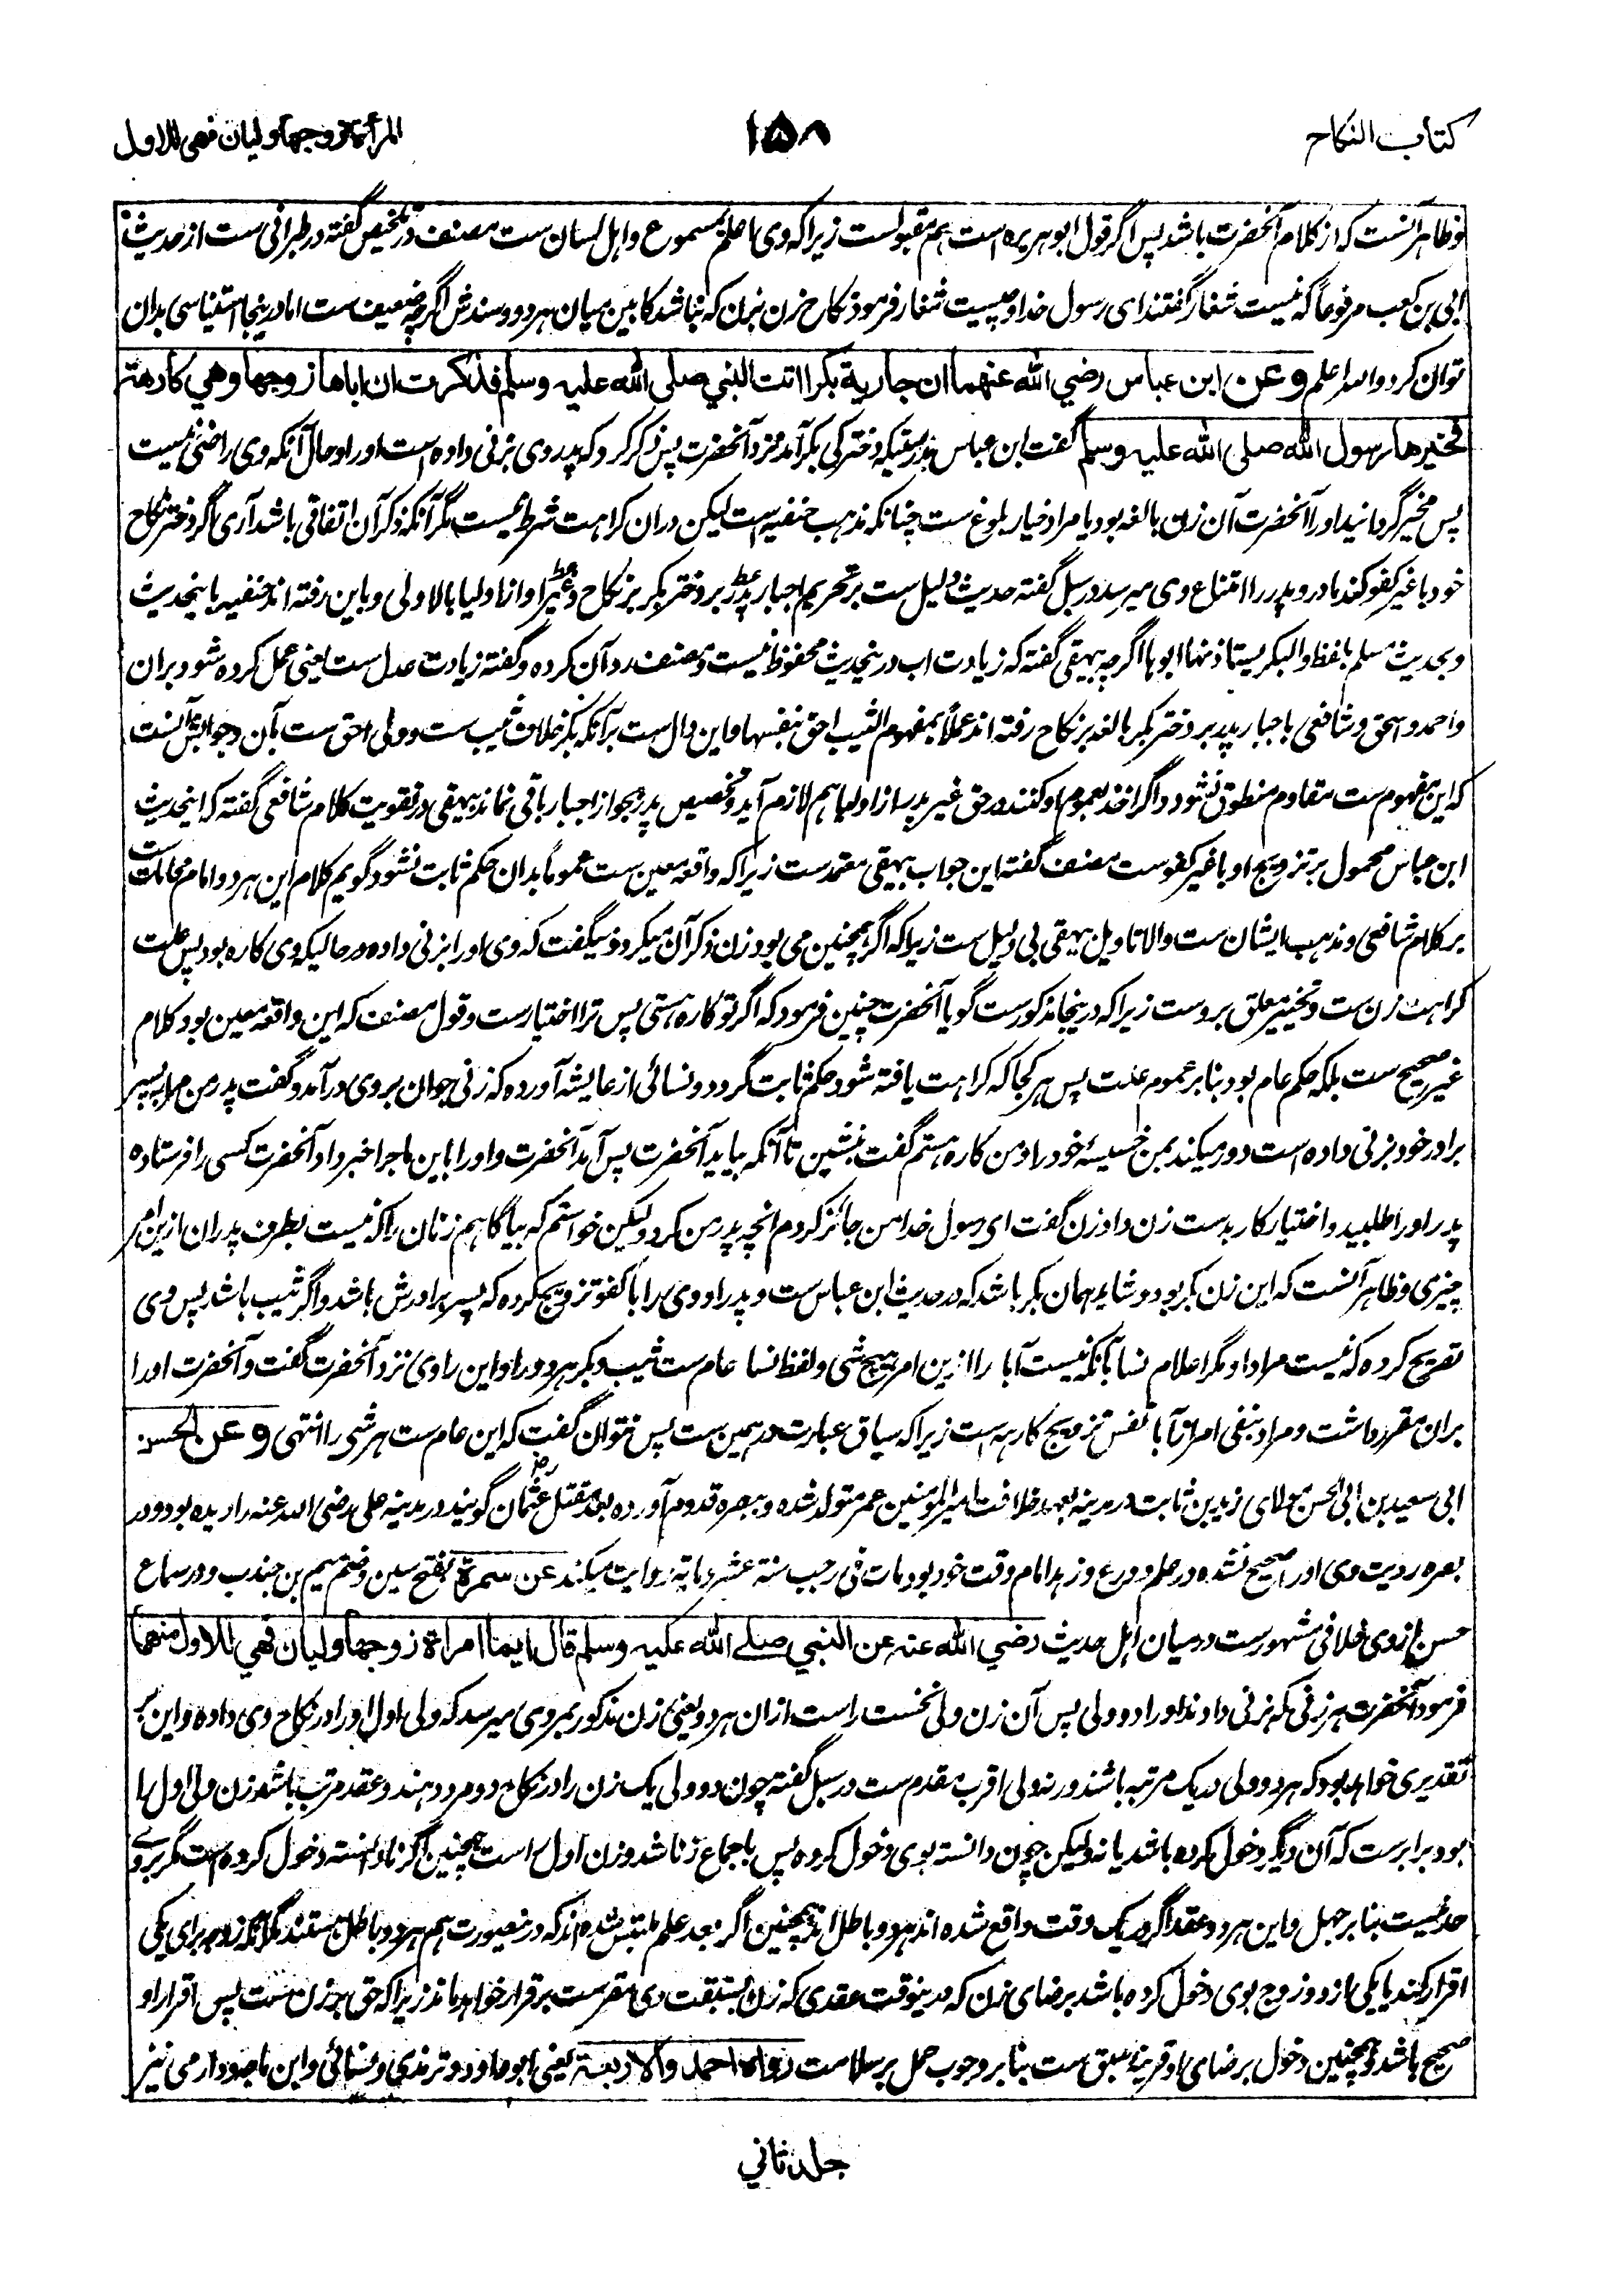 كتاب النكاح
١٥٨
المرأة زوجها وليان فهي للاول
وظاهر آنست که از کلام آنحضرت باشد پس اگر قول ابوهریره است هم مقبولست زیرا که وی اعلم بمسموع و اهل لسان ست مصنف در تلخیص گفته در طبرانی ست از حدیث
ابی بن کعب مرفوعا که نیست شغار گفتند ای رسول خدا و چیست شغار فرمود نکاح زن بزن که نباشد کابین میان هر دو و سندش اگرچه ضعیف ست اما در ینجا استیناسی بدان
توان کرد والله اعلم وعن ابن عباس رضي الله عنهما ان جارية بكرا اتت النبي صلى الله عليه وسلم فذكرت ان اباها زوجها وهي كارهة
فخيرها رسول الله صلى الله عليه وسلم گفت ابن عباس بدرستیکه دخترکی بکر آمد نزد آنحضرت پس ذکر کرد که پدر وی بزنی داده است او را و حال آنکه وی راضی نیست
پس مخیر گردانید او را آنحضرت آن زن بالغه بود یا مراد خیار بلوغ ست چنانکه مذهب حنفیه است لیکن دران کراهت شرط نیست مگر آنکه ذکر آن اتفاقی باشد آری اگر دختر نکاح
خود با غیر کفو کند مادر و پدر را امتناع وی میرسد در سبل گفته حدیث دلیل ست بر تحریم اجبار پدر بر دختر بکر بر نکاح و غیر او از اولیا بالاولی و باین رفته اند حنفیه باینحدیث
و بحدیث مسلم بلفظ والبکر یستاذنها ابوها اگرچه بیهقی گفته که زیادت اب درینحدیث محفوظ نیست و مصنف رد آن کرده و گفته زیادت عدل ست یعنی عمل کرده شود بران
و احمد و اسحق و شافعی باجبار پدر بر دختر بکر بالغه بر نکاح رفته اند عملا بمفهوم الثیب احق بنفسها و این دال ست بر آنکه بکر خلاف ثیب ست و ولی احق ست بآن و جوابش آنست
که این مفهوم ست مقاوم منطوق نشود و اگر اخذ بعموم او کنند در حق غیر پدر از اولیا هم لازم آید و تخصیص پدر بجواز اجبار باقی نماند بیهقی در تقویت کلام شافعی گفته که اینحدیث
ابن عباس محمول بر تزویج او با غیر کفو ست مصنف گفته این جواب بیهقی معتمد ست زیرا که واقعه معین ست عموما بدان حکم ثابت نشود گویم کلام این هر دو امام محامات ست
بر کلام شافعی و مذهب ایشان ست والا تاویل بیهقی بی دلیل ست زیرا که اگر همچنین می بود زن ذکر آن میکرد و میگفت که وی او را بزنی داده در حالیکه وی کاره بود پس علت
کراهت زن ست و تخییر معلق بروست زیرا که درینجا مذکورست گویا آنحضرت چنین فرمود که اگر تو کاره هستی پس ترا اختیار ست و قول مصنف که این واقعه معین بود کلام
غیر صحیح ست بلکه حکم عام بود بنا بر عموم علت پس هر کجا که کراهت یافته شود حکم ثابت گردد و نسائی از عایشه آورده که زنی جوان بر وی در آمد و گفت پدر من مرا به پسر
برادر خود بزنی داده است دور میکند بمن خسیسه خود را و من کاره هستم گفت بنشین تا آنکه بیاید آنحضرت پس آمد آنحضرت و او را باین ماجرا خبر داد آنحضرت کسی را فرستاده
پدر او را طلبید و اختیار کار بدست زن داد زن گفت ای رسول خدا من جائز کردم آنچه پدر من کرد و لیکن خواستم که بیاگاهم زنان را که نیست بطرف پدران ازین امر
چیزی و ظاهر آنست که این زن بکر بود و شاید همان بکر باشد که در حدیث ابن عباس ست و پدر او وی را با کفو تزویج کرده که پسر برادرش باشد و اگر ثیب باشد پس وی
تصریح کرده که نیست مراد او مگر اعلام نسا بآنکه نیست آبا را ازین امر هیچ شی و لفظ نسا عام ست ثیب و بکر هر دو را و این را وی نزد آنحضرت گفت و آنحضرت او را
بران مقرر داشت و مراد بنفی امر از آبا نفس تزویج کارهه است زیرا که سیاق عبارت در همین ست پس نتوان گفت که این عام ست هر شی را انتهی وعن الحسن
ابی سعید بن ابی الحسن مولای زید بن ثابت در مدینه بعهد خلافت امیرالمؤمنین عمر متولد شده و ببصره قدوم آورده بعد مقتل عثمان گویند در مدینه علی رضی الله عنه را دیده بود و در
بصره رویت وی او را صحیح نشده در علم و ورع و زهد امام وقت خود بود مات فی رجب سنة عشر و مایة روایت میکند عن سمرة بفتح سین و ضم میم بن جندب و در سماع
حسن از وی خلافی مشهور ست در میان اهل حدیث رضي الله عنه عن النبي صلى الله عليه وسلم قال ايما امراة زوجها وليان فهي للاول منهما
فرمود آنحضرت هر زنی که بزنی دادند او را دو ولی پس آن زن ولی نخست راست ازان هر دو یعنی زن مذکور بمردی میرسد که ولی اول او را در نکاح وی داده و این بر
تقدیری خواهد بود که هر دو ولی در یک مرتبه باشند ورنه ولی اقرب مقدم ست در سبل گفته چون دو ولی یک زن را در نکاح دو مرد دهند و عقد مرتب باشد زن ولی اول را
بود برابر ست که آن دیگر دخول کرده باشد یا نه لیکن چون دانسته بوی دخول کرده پس باجماع زنا شد و زن اول راست همچنین اگر نادانسته دخول کرده است مگر بر وے
حد نیست بنا بر جهل و این هر دو عقد اگر در یک وقت واقع شده اند هر دو باطل اند همچنین اگر بعد علم ملتبس شده اند که درینصورت هم هر دو باطل هستند مگر آنکه زوجه برای یکی
اقرار کند یا یکی از دو زوج بوی دخول کرده باشد برضای زن که درینوقت عقدی که زن بسبقت وی مقر ست برقرار خواهد ماند زیرا که حق بر زن ست پس اقرار او
صحیح باشد و همچنین دخول برضای او قرینه سبق ست بنا بر وجوب حمل بر سلامت رواه احمد والاربعة یعنی ابو داود و ترمذی و نسائی و ابن ماجه و دارمی نیز
جلد ثاني